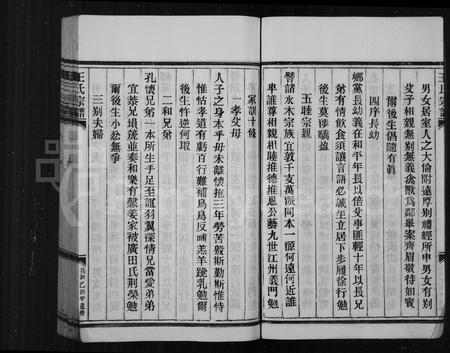 男女居室人之大倫附遠厚別禮經所申男女有別
父子相親無別無義禽獸為鄰舉案齊眉敬待如賓
爾後生倡隨有真
四序長幼
鄉黨長幼義在和平年長以倍父事匪輕十年以長兄
弟有情飲食須讓言語必誠坐立居下步履徐行勉
後生莫學驕盈
五睦宗親
譬諸水木宗族宜敦千支萬派同本一源何遠何近誰
卑誰尊相親相睦推德推恩公藝九世江州義門勉
家訓十條
一孝父母
人子之身本乎母未離懷抱三年勞苦殷斯勤斯惟恃
惟怙孝道有虧百行難補烏鳥反哺羔羊跪乳勉爾
後生忤逆何取
二和兄弟
孔懷兄弟一本所生手足至誼羽翼深情兄當愛弟弟
宜恭兄塤篪並奏和樂有馨姜家被廣田氏荊榮勉
爾後生小忿無爭
三別夫婦
王氏宗譜